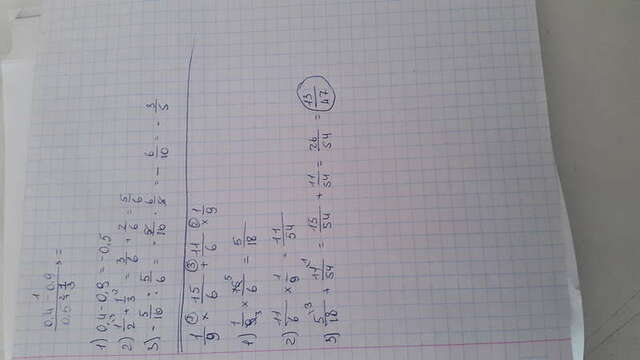 1
0,4 - 0,9
0,5 + 1/3 =
1) 0,4 - 0,9 = -0,5
2) 1/2 + 1/3 = 3/6 + 2/6 = 5/6
3) - 5/10 : 5/6 = - 5/10 · 6/5 = - 6/10 = - 3/5
1/9 × 15/6 + 11/6 × 1/9
1) 1/9 3 × 15 5/6 = 5/18
2) 11/6 × 1/9 = 11/54
3) 5 3/18 + 11 1/54 = 15/54 + 11/54 = 26/54 = 13/47